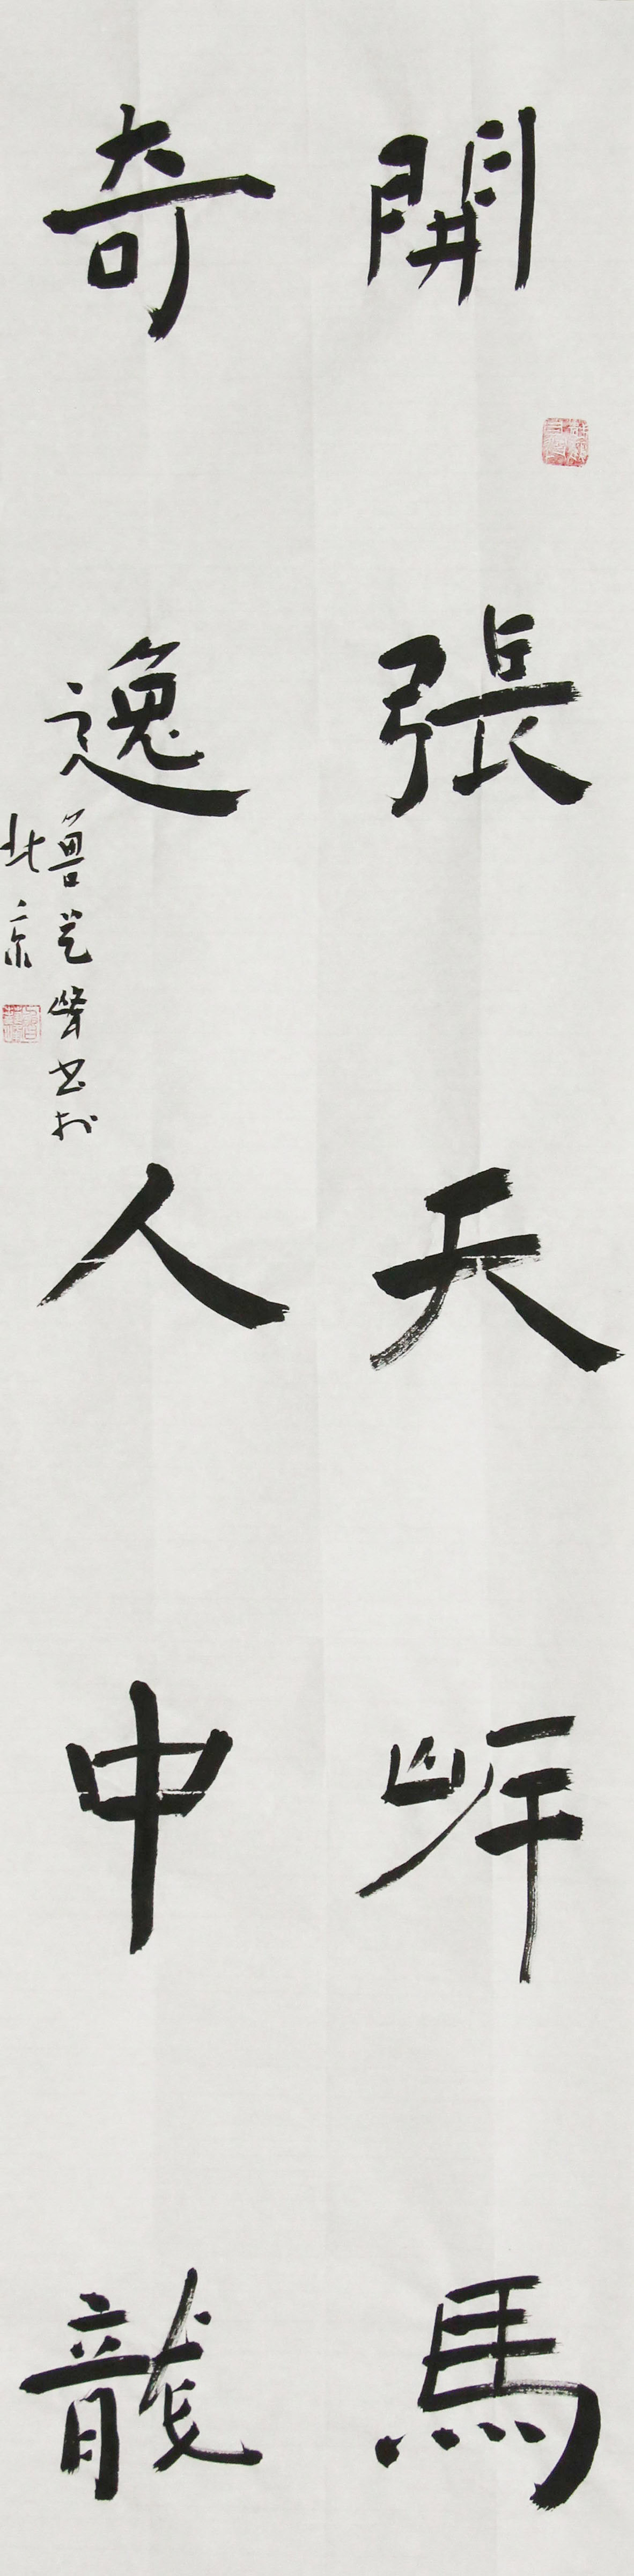 開張天岸馬
奇逸人中龍
书於
北京